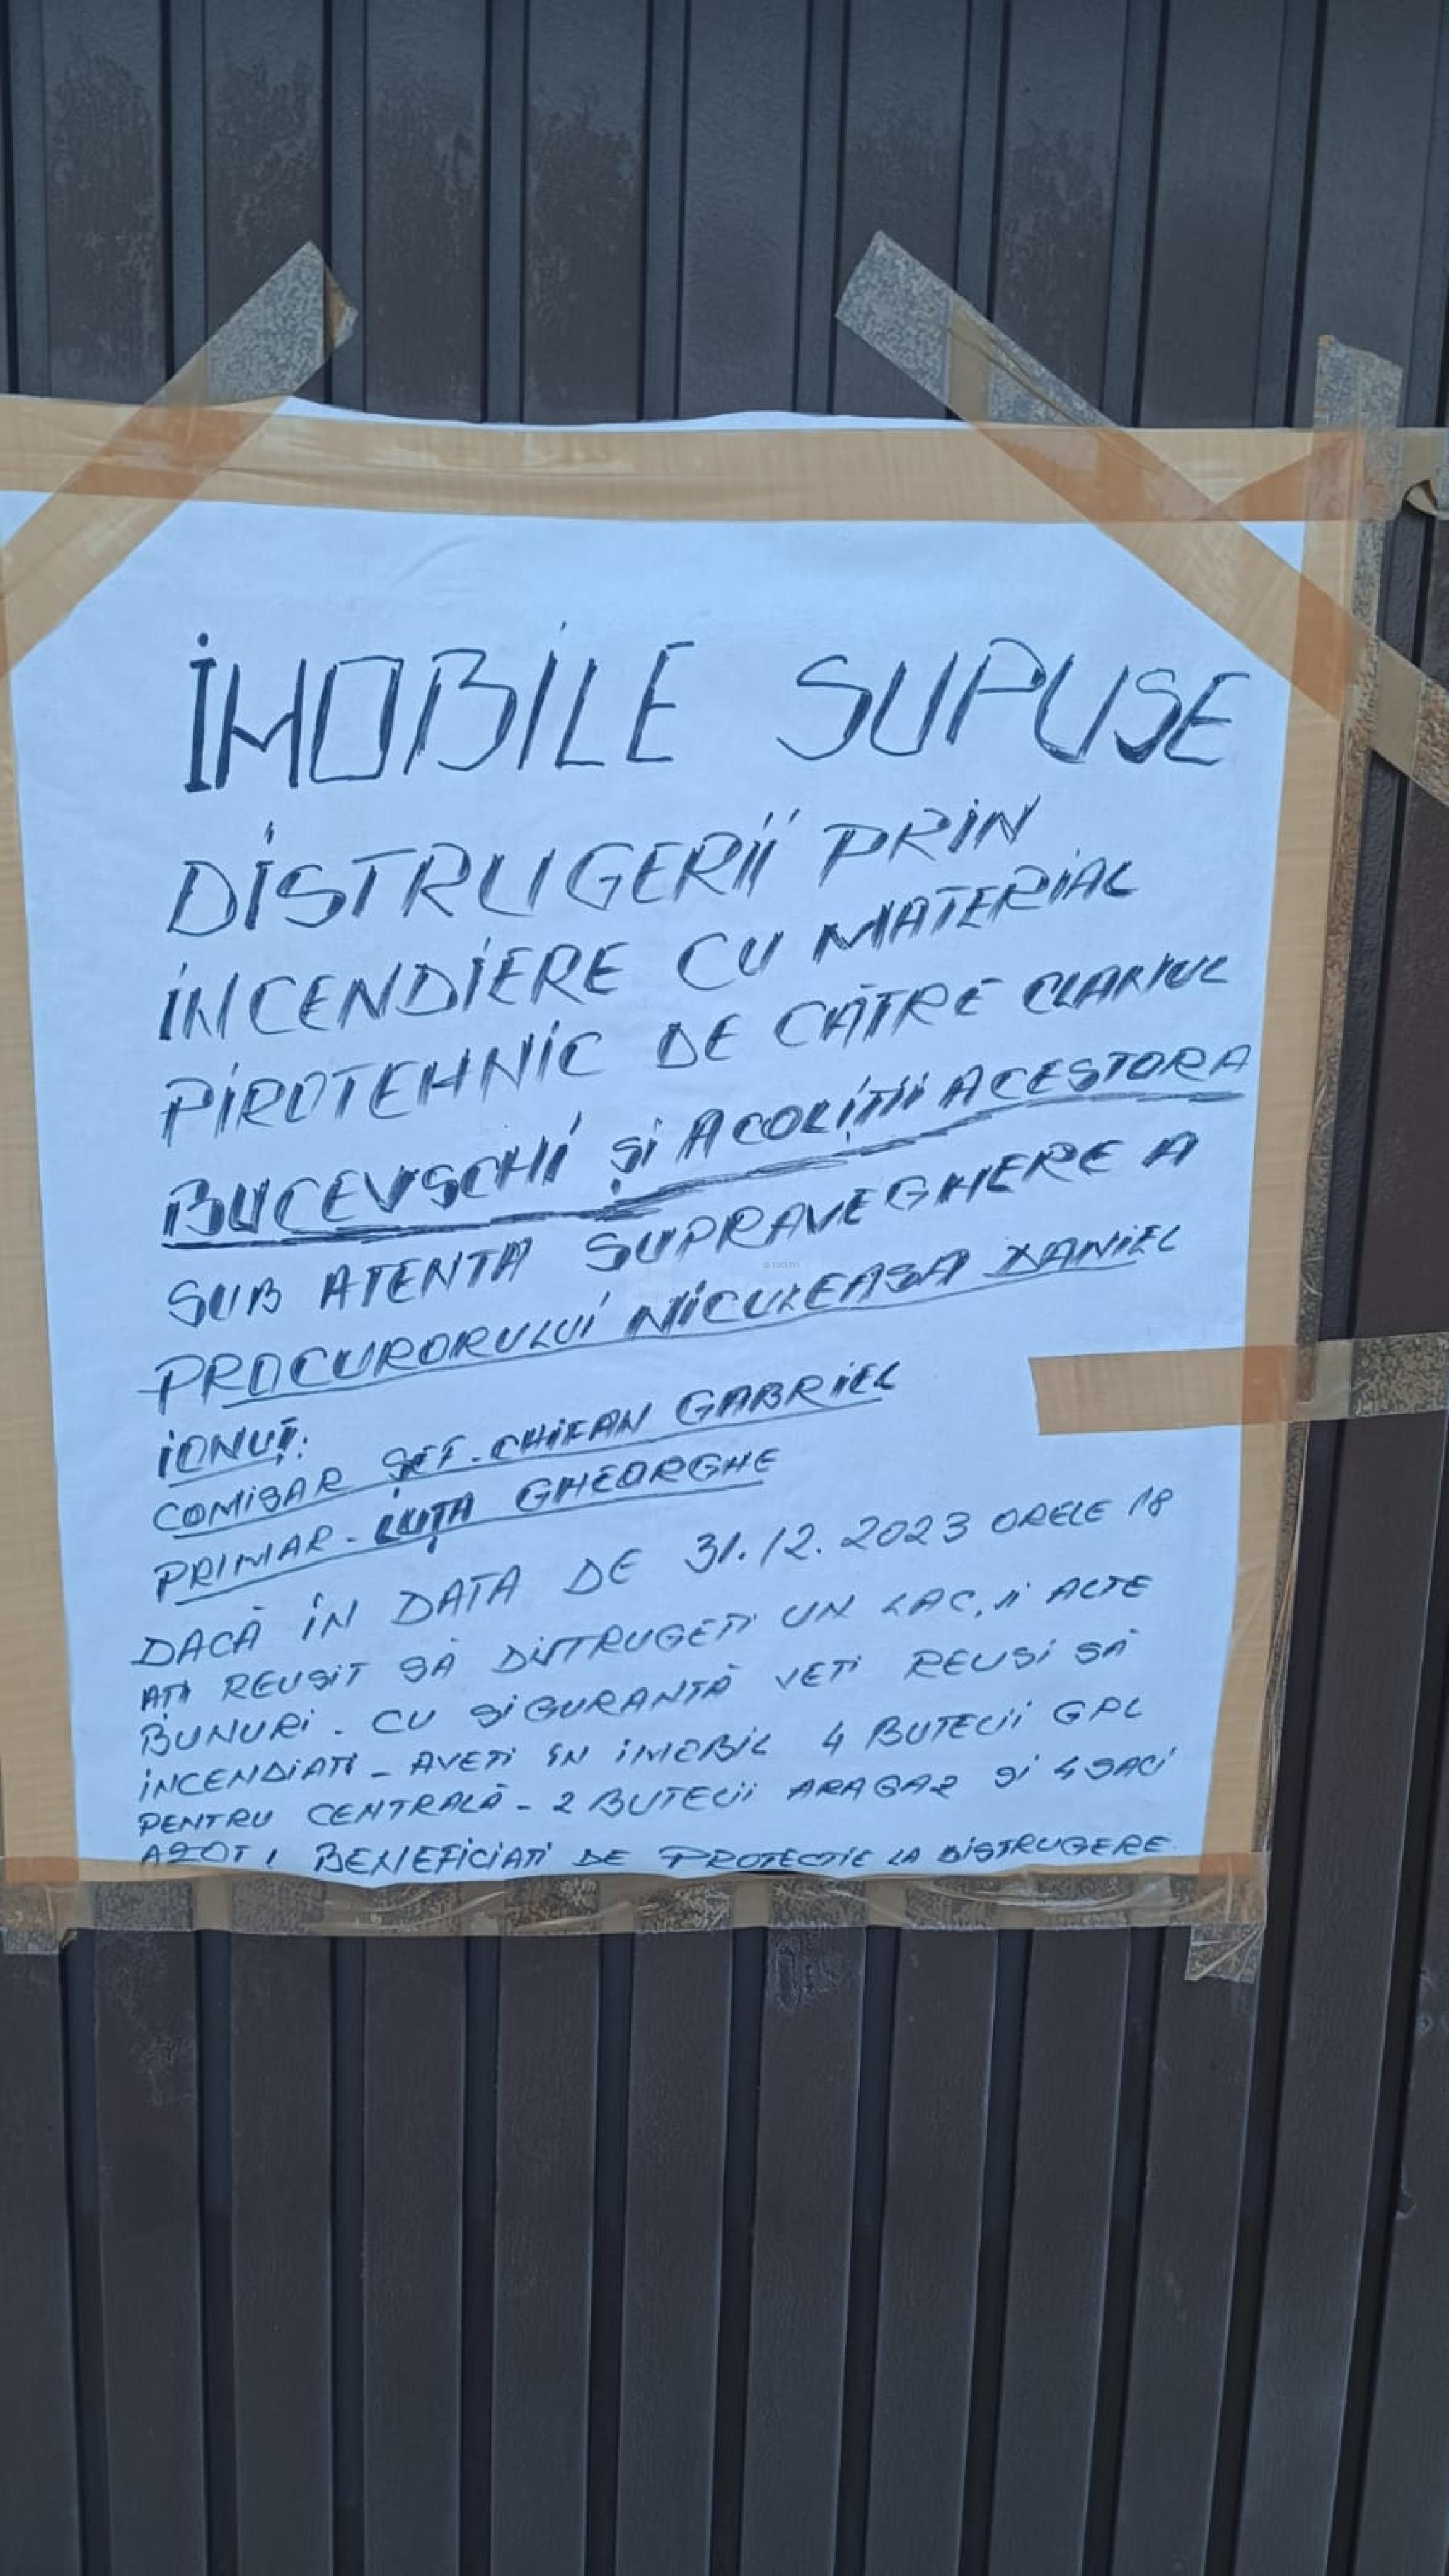 IMOBILE SUPUSE
DISTRUGERII PRIN
INCENDIERE CU MATERIAL
PIROTEHNIC DE CĂTRE CLANUL
BUCEVSCHI ȘI ACOLIȚII ACESTORA
SUB ATENTA SUPRAVEGHERE A
PROCURORULUI NICULEASA DANIEL
IONUȚ:
COMISAR ȘEF - CHIFAN GABRIEL
PRIMAR - LUȚA GHEORGHE
DACĂ ÎN DATA DE 31.12.2023 ORELE 18
AȚI REUSIT SĂ DISTRUGEȚI UN LAC, ȘI ALTE
BUNURI - CU SIGURANȚĂ VEȚI REUSI SĂ
INCENDIAȚI - AVEȚI ÎN IMOBIL 4 BUTELII GPL
PENTRU CENTRALĂ - 2 BUTELII ARAGAZ SI 4 SACI
AZOT! BENEFICIAȚI DE PROTECTIE LA DISTRUGERE.